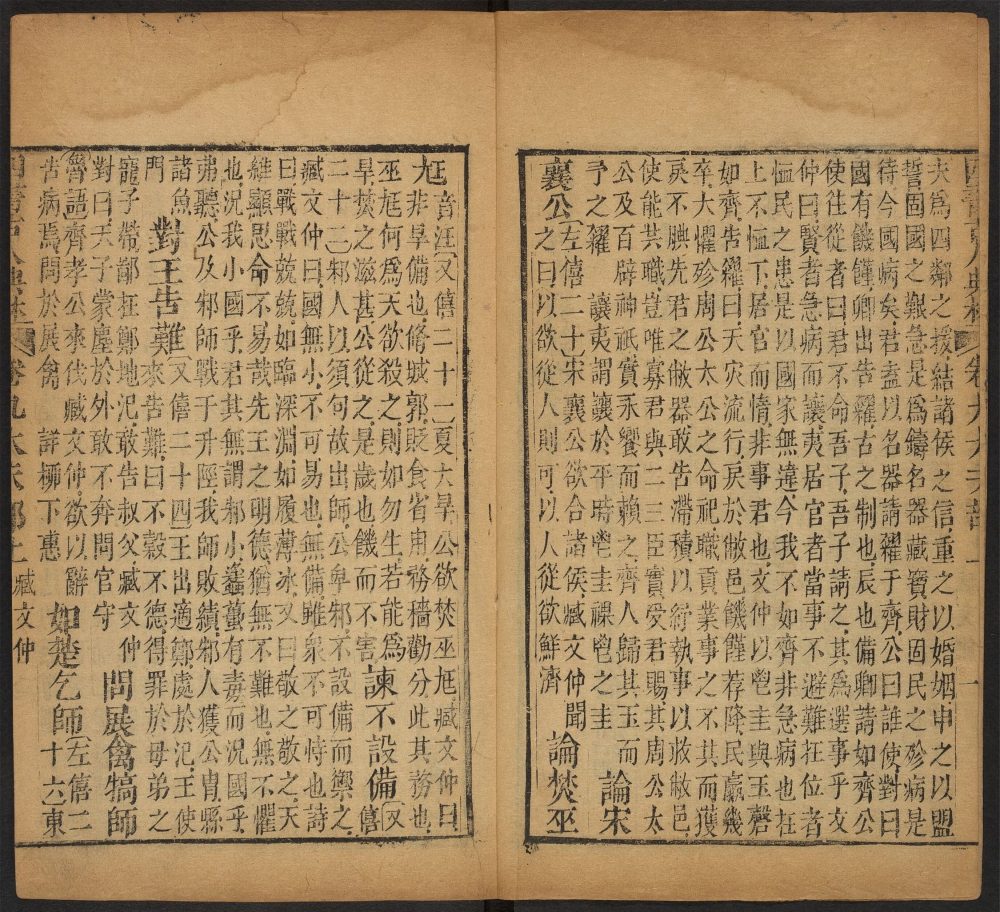 夫為四鄰之援結諸侯之信重之以婚姻申之以盟
誓固國之艱急是為鑄名器藏寶財固民之殄病是
待今國病矣君盍以名器請糴于齊公曰誰使對曰
國有饑饉卿出告糴古之制也辰也備卿請如齊公
使往從者曰君不命吾子吾子請之其為選事乎文
仲曰賢者急病而讓夷居官者當事不避難在位者
恤民之患是以國家無違今我不如齊非急病也在
上不恤下居官而惰非事君也文仲以鬯圭與玉磬
如齊告糴曰天灾流行戾於敝邑饑饉荐降民羸幾
卒大懼殄周公太公之命祀職貢業事之不共而獲
戾不腆先君之敝器敢告滯積以紓執事以收敝邑
使能共職豈唯寡君與二三臣實受君賜其周公太
公及百辟神祇實永饗而賴之齊人歸其玉而
予之糴 讓夷謂讓於平時鬯圭祼鬯之圭 論宋
襄公左僖二十宋襄公欲合諸侯臧文仲聞
之曰以欲從人則可以人從欲鮮濟 論焚巫
尪音汪又僖二十一夏大旱公欲焚巫尪臧文仲曰
非旱備也脩城郭貶食省用務穡勸分此其務也
巫尪何為天欲殺之則如勿生若能為
旱焚之滋甚公從之是歲也饑而不害 諫不設備又僖
二十二邾人以須句故出師公卑邾不設備而禦之
臧文仲曰國無小不可易也無備雖衆不可恃也詩
曰戰戰兢兢如臨深淵如履薄冰又曰敬之敬之天
維顯思命不易哉先王之明德猶無不難也無不懼
也況我小國乎君其無謂邾小蠭蠆有毒而況國乎
弗聽公及邾師戰于升陘我師敗績邾人獲公冑縣
諸魚
門 對王告難又僖二十四王出適鄭處於氾王使
來告難曰不穀不德得罪於母弟之
寵子帶鄙在鄭地氾敢告叔父臧文仲
對曰天子蒙塵於外敢不奔問官守 問展禽犒師
魯語齊孝公來伐臧文仲欲以辭
苦病焉問於展禽 詳柳下惠 如楚乞師左僖二
十六東
卷九大夫部上 臧文仲